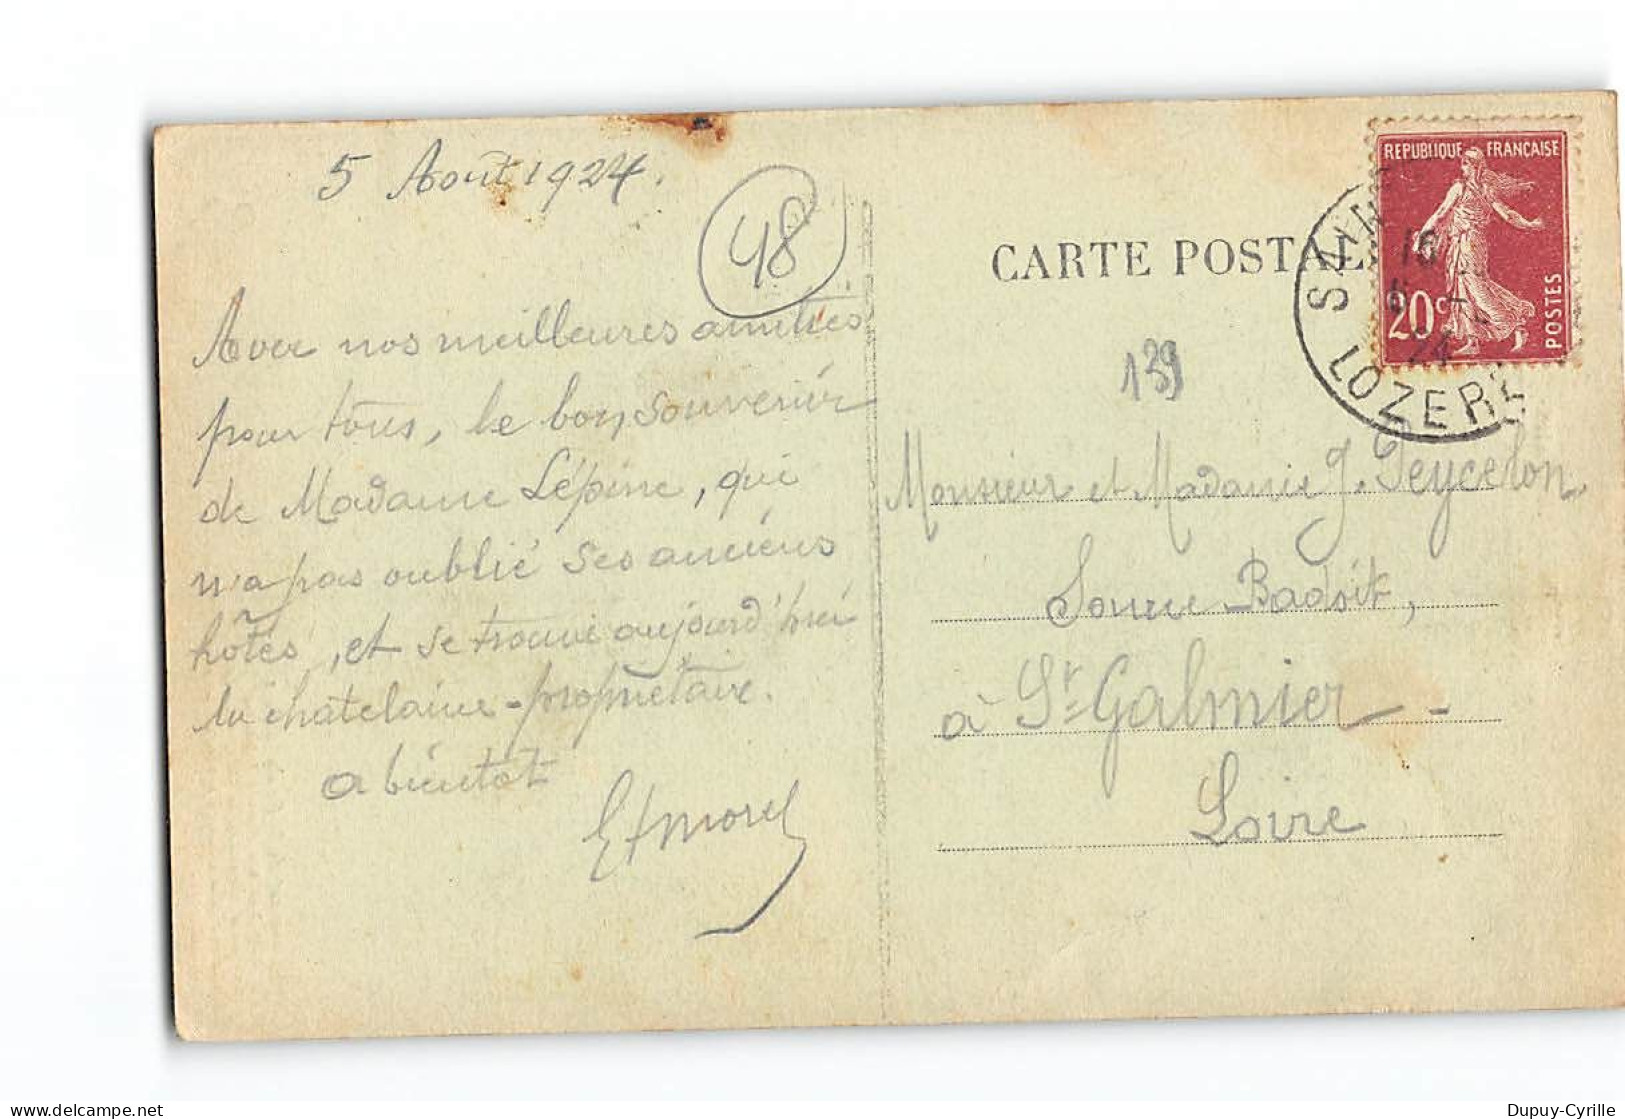 5 Août 1924.
48
Avec nos meilleures amitiés
pour tous, le bon souvenir
de Madame Lépine, qui
n'a pas oublié ses anciens
hôtes, et se trouve aujourd'hui
la chatelaine-propriétaire.
a bientot
CARTE POSTALE
139
REPUBLIQUE FRANÇAISE
20c
POSTES
16
24
LOZERE
Monsieur et Madame J. Peycelon,
Source Badoit,
à St Galmier -
Loire
Dupuy-Cyrille